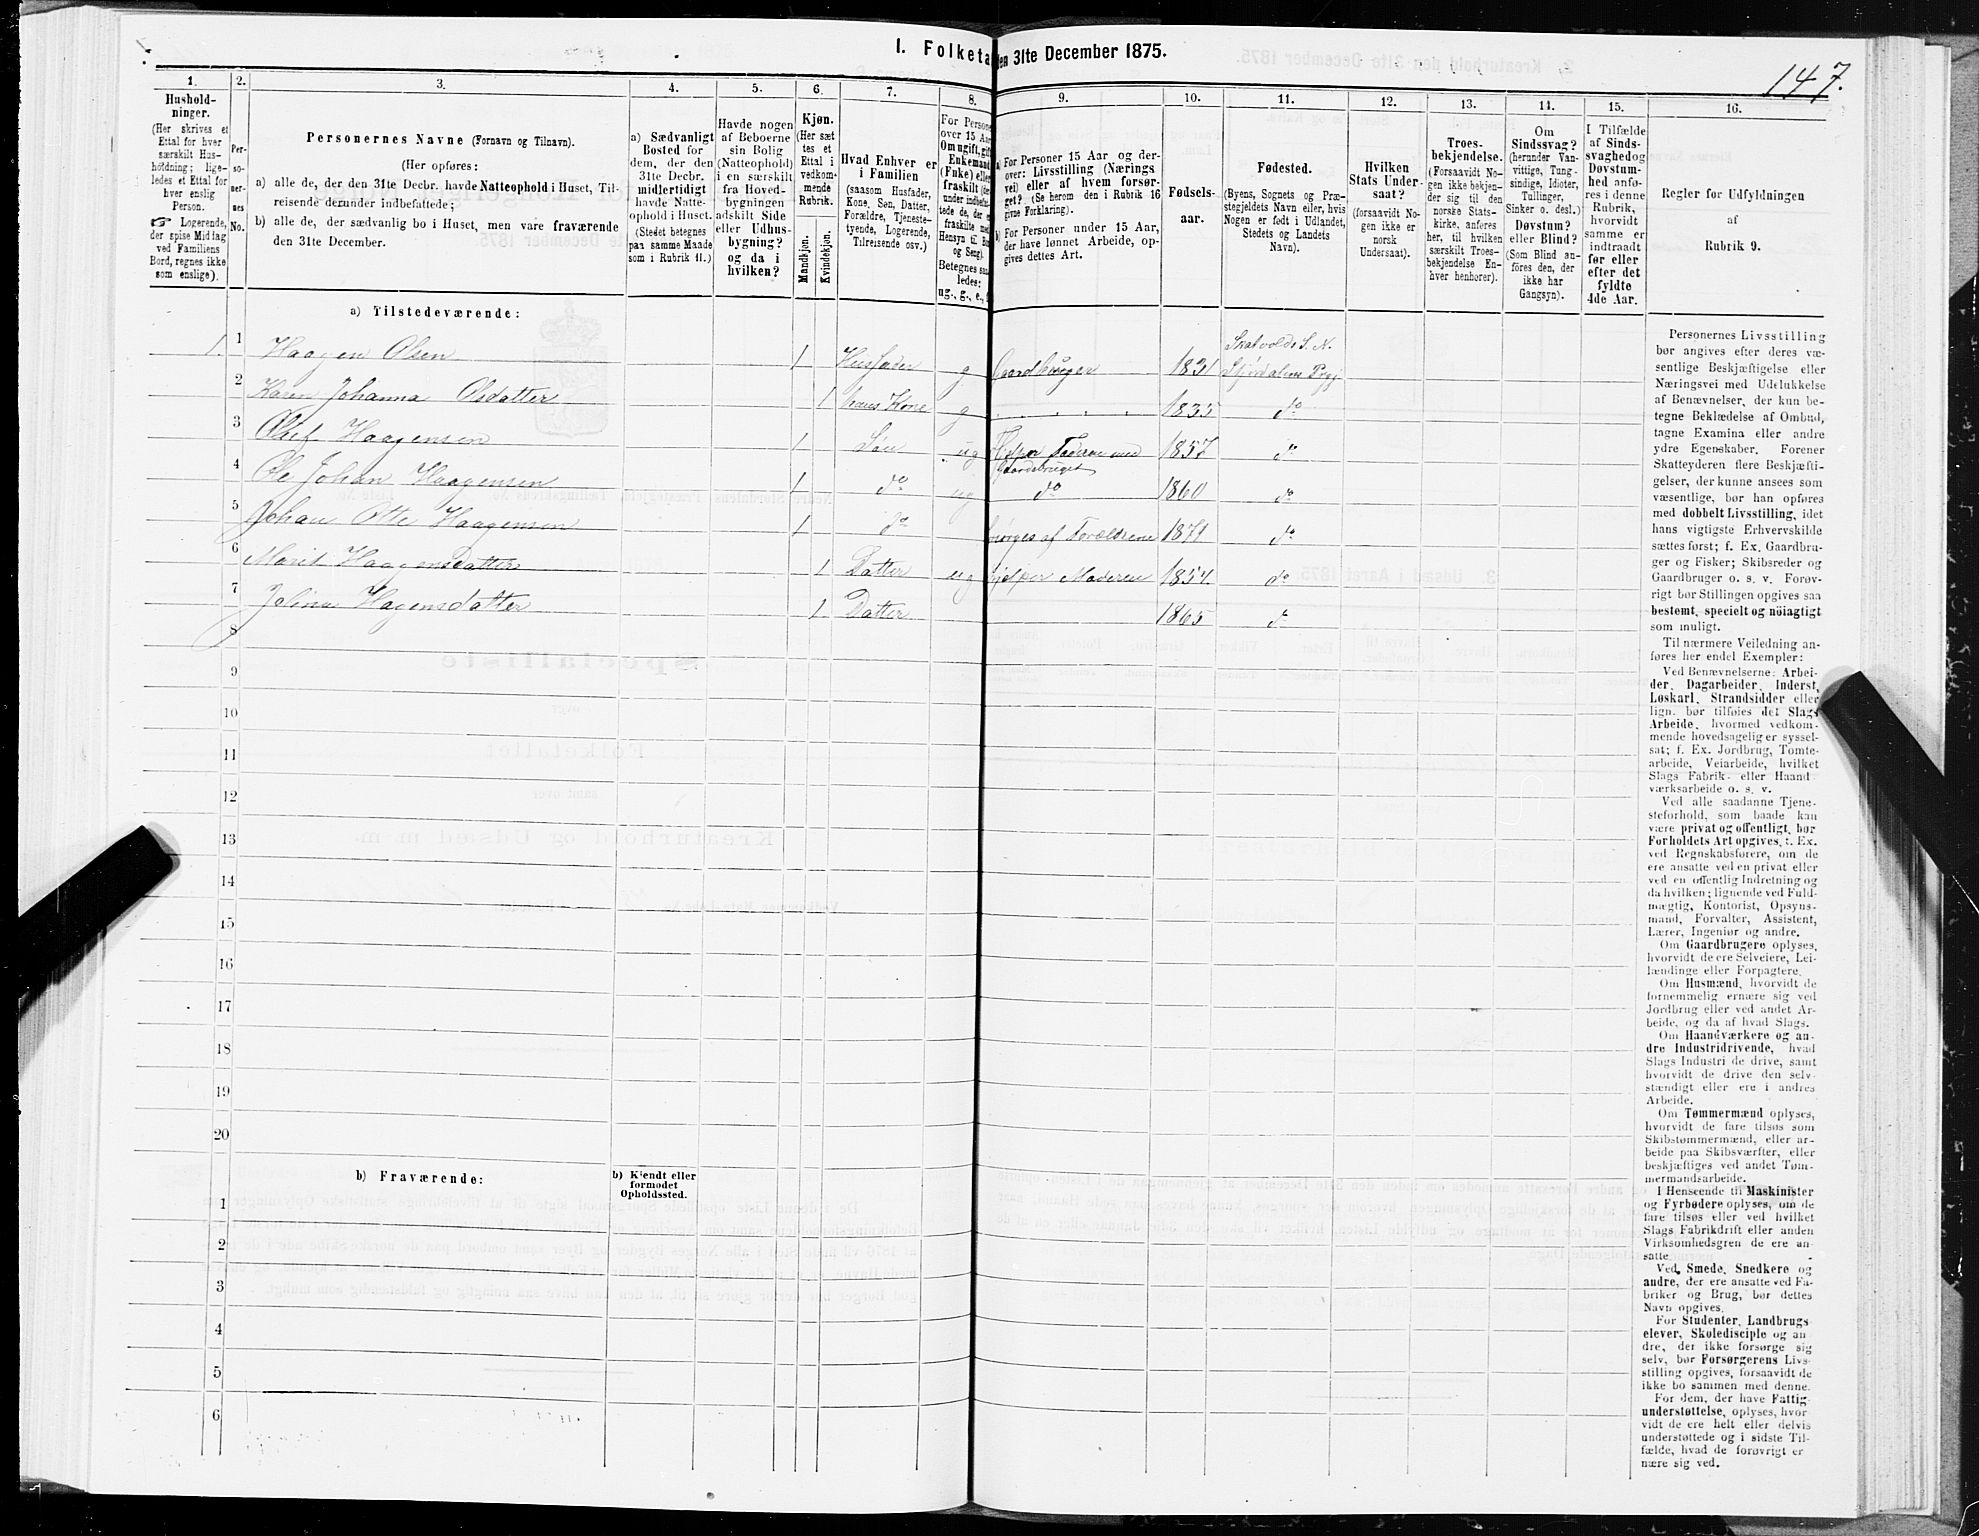 I. Folketa
den 31te December 1875.
147.
1.
Hushold-
ninger.
(Her skrives et
Ettal for hver
særskilt Hus-
holdning; lige-
ledes et Ettal for
hver enslig
Person.
☞ Logerende,
der spise Middag
ved Familiens
Bord, regnes ikke
som enslige).
2.
Per-
so-
ner-
nes
No.
3.
Personernes Navne (Fornavn og Tilnavn).
(Her opføres:
a) alle de, der den 31te Decbr. havde Natteophold i Huset, Til-
reisende derunder indbefattede;
b) alle de, der sædvanlig bo i Huset, men vare fraværende
den 31te December.
4.
a) Sædvanligt
Bosted for
dem, der den
31te Decbr.
midlertidigt
havde Natte-
ophold i Huset.
(Stedet betegnes
paa samme Maade
som i Rubrik 11.)
5.
Havde nogen
af Beboerne
sin Bolig
(Natteophold)
i en særskilt
fra Hoved-
bygningen
adskilt Side
eller Udhus-
bygning?
og da i
hvilken?
6.
Kjøn.
(Her sæt
tes et
Ettal i
vedkom-
mende
Rubrik.
Mandkjøn.
Kvindekjøn.
7.
Hvad Enhver er
i Familien
(saasom Husfader,
Kone, Søn, Datter,
Forældre, Tjeneste-
tyende, Logerende,
Tilreisende osv.)
8.
For Persone
over 15 Aar
Om ugift, gift
Enkemand
(Enke) eller
fraskilt (de
under indbefat-
tede de, der e
fraskilte med
Hensyn til Bo
og Seng).
Betegnes saa
ledes:
ug., g., e.,
9.
a) For Personer 15 Aar og der-
over: Livsstilling (Nærings
vei) eller af hvem forsør-
get? (Se herom den i Rubrik 16
givne Forklaring).
b) For Personer under 15 Aar,
der have lønnet Arbeide, op-
gives dettes Art.
10.
Fødsels-
aar.
11.
Fødested.
(Byens, Sognets og Præ-
stegjeldets Navn eller, hvis
Nogen er født i Udlandet,
Stedets og Landets
Navn).
12.
Hvilken
Stats Under-
saat?
(forsaavidt No-
gen ikke er
norsk
Undersaat).
13.
Troes-
bekjendelse.
(Forsaavidt No-
gen ikke bekjen-
der sig til den
norske Stats-
kirke, anføres
her, til hvilken
særskilt Troes-
bekjendelse En-
hver henhører).
14.
Om
Sindssvag?
(herunder Van-
vittige, Tung-
sindige, Idioter,
Tullinger,
Sinker o. desl.)
Døvstum?
eller Blind?
(Som Blind an-
føres den, der
ikke har
Gangsyn).
15.
I Tilfælde
af Sinds-
svaghed og
Døvstum-
hed anfø-
res i denne
Rubrik,
hvorvidt
samme er
indtraadt
før eller
efter det
fyldte
4de Aar.
16.
Regler for Udfyldningen
af
Rubrik 9.
a) Tilstedeværende:
1. 1 Haagen Olsen 1 Husfader g Gaardbruger 1831 Skatvolds S. N. Stjørdalens Prgj
2 Karen Johanna Olsdatter 1 hans Kone g . . . . 1835 do
3 Oluf Haagensen 1 Søn ug Hjelper Faderen med Gaardsbruget 1857 do
4 Ole Johan Haagensen 1 do ug do 1860 do
5 Johan Otte Haagensen 1 do forsørges af Forældrene 1871 do
6 Marit Haagensdatter 1 Datter ug hjelper Moderen 1854 do
7 Jolina Hagensdatter 1 Datter 1865 do
8
9
10
11
12
13
14
15
16
17
18
19
20
b) Fraværende:
b) Kjendt eller
formodet
Opholdssted.
1
2
3
4
5
6
Personernes Livsstilling
bør angives efter deres væ-
sentlige Beskjæftigelse eller
Næringsvei med Udelukkelse
af Benævnelser, der kun be-
tegne Beklædelse af Ombud,
tagne Examina eller andre
ydre Egenskaber. Forener
Skatteyderen flere Beskjæfti-
gelser, der kunne ansees som
væsentlige, bør han opføres
med dobbelt Livsstilling, idet
hans vigtigste Erhvervskilde
sættes først; f. Ex. Gaardbru-
ger og Fisker; Skibsreder og
Gaardbruger o. s. v. Forøv-
rigt bør Stillingen opgives saa
bestemt, specielt og nöiagtigt
som muligt.
Til nærmere Veiledning an-
føres her endel Exempler:
Ved Benævnelserne: Arbei-
der, Dagarbeider, Inderst,
Løskarl, Strandsidder eller
lign. bør tilføies det Slags
Arbeide, hvormed vedkom-
mende hovedsagelig er syssel-
sat; f. Ex. Jordbrug, Tomte-
arbeide, Veiarbeide, hvilket
Slags Fabrik- eller Haand
værksarbeide o. s. v.
Ved alle saadanne Tjene-
steforhold, som baade kan
være privat og offentligt, bør
Forholdets Art opgives, f. Ex.
ved Regnskabsførere, om de
ere ansatte ved en privat eller
ved en offentlig Indretning og
da hvilken; lignende ved Fuld-
mægtig, Kontorist, Opsyns-
mand, Forvalter, Assistent,
Lærer, Ingeniør og andre.
Om Gaardbrugere oplyses,
hvorvidt de ere Selveiere, Lei-
lændinge eller Forpagtere.
Om Husmænd, hvorvidt de
fornemmelig ernære sig ved
Jordbrug eller ved andet Ar-
beide, og da af hvad Slags.
Om Haandværkere og an-
dre Industridrivende, hvad
Slags Industri de drive, samt
hvorvidt de drive den selv-
stændigt eller ere i andres
Arbeide.
Om Tømmermænd oplyses,
hvorvidt de fare tilsøs som
Skibstømmermænd, eller ar-
beide paa Skibsværfter, eller
beskjæftiges ved andet Tøm-
mermandsarbeide.
I Henseende til Maskinister
og Fyrbødere oplyses, om de
fare tilsøs eller ved hvilket
Slags Fabrikdrift eller anden
Virksomhedsgren de ere an-
satte.
Ved Smede, Snedkere og
andre, der ere ansatte ved Fa-
briker og Brug, bør dettes
Navn opgives.
For Studenter, Landbrugs-
elever, Skoledisciple og an
dre, der ikke forsørge sig
selv, bør Forsørgerens Livs-
stilling opgives, forsaavidt de
ikke bo sammen med denne.
For dem, der have Fattig-
understøttelse, oplyses, hvor
vidt de ere helt eller delvis
understøttede og i sidste Til-
fælde, hvad de forøvrigt er
nære sig ved.